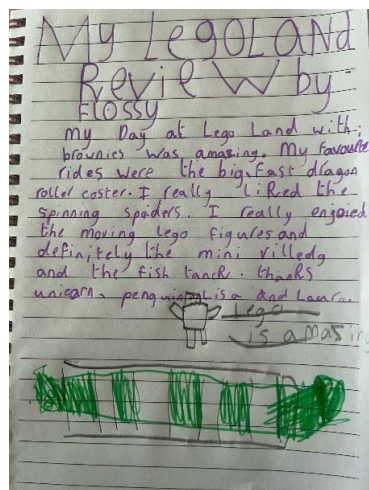 My LegoLaND
Review by
FLossy
my Day at Lego Land with
brownies was amazing. My favourite
rides were the big, fast dragon
roller coster. I really liked the
spinning spiders. I really enjoied
the moving lego figures and
definitely the mini villedg
and the fish tanck. thanks
unicorn, penguin, Lisa and Laura.
Lego
is amazing